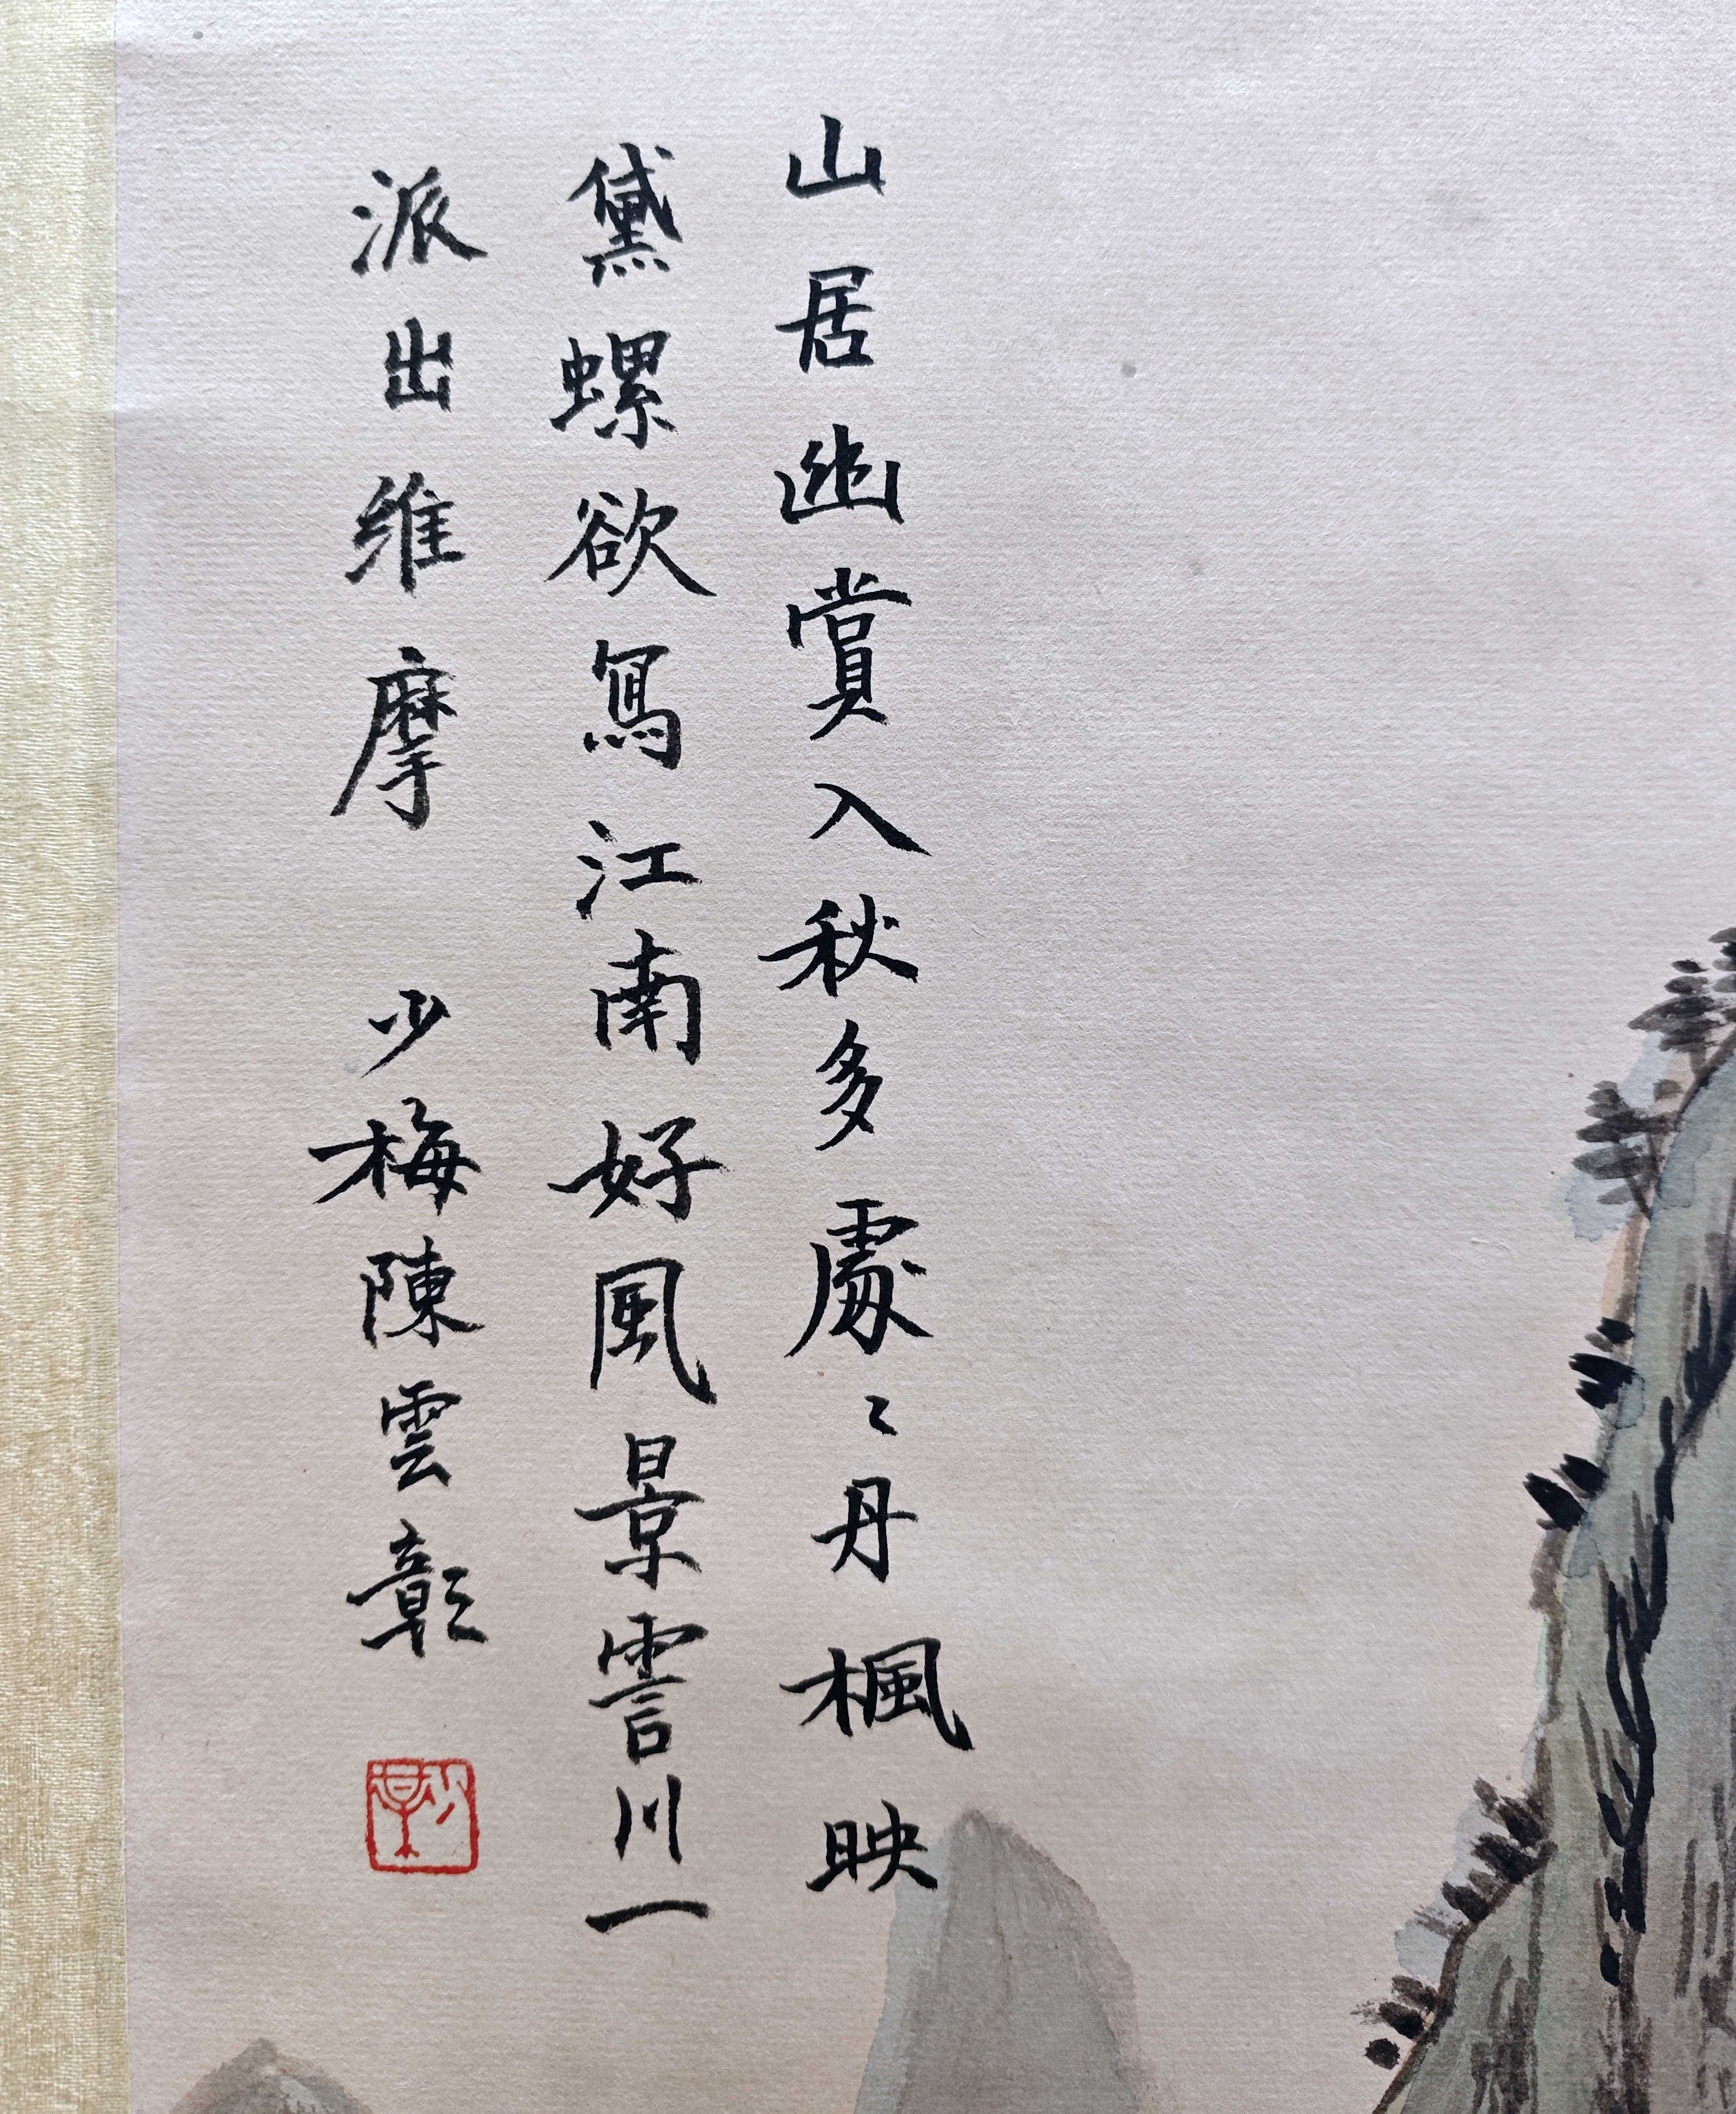 山居幽賞入秋多處〻丹楓映
黛螺欲寫江南好風景雪川一
派出維摩 少梅陳雲彰